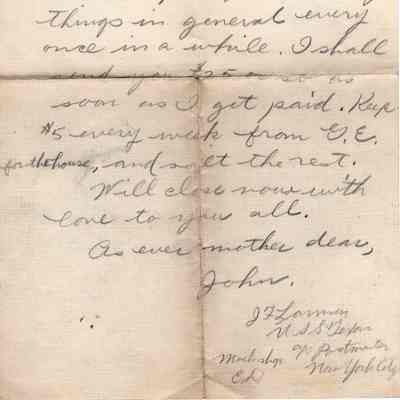 things in general every
once in a while. I shall
send you $25 or so as
soon as I get paid. Keep
$5 every week from G.E.
for the house, and salt the rest.
Will close now with
love to you all.
As ever mother dear,
John.
J F
U S S Texas
℅ Postmaster
New York City